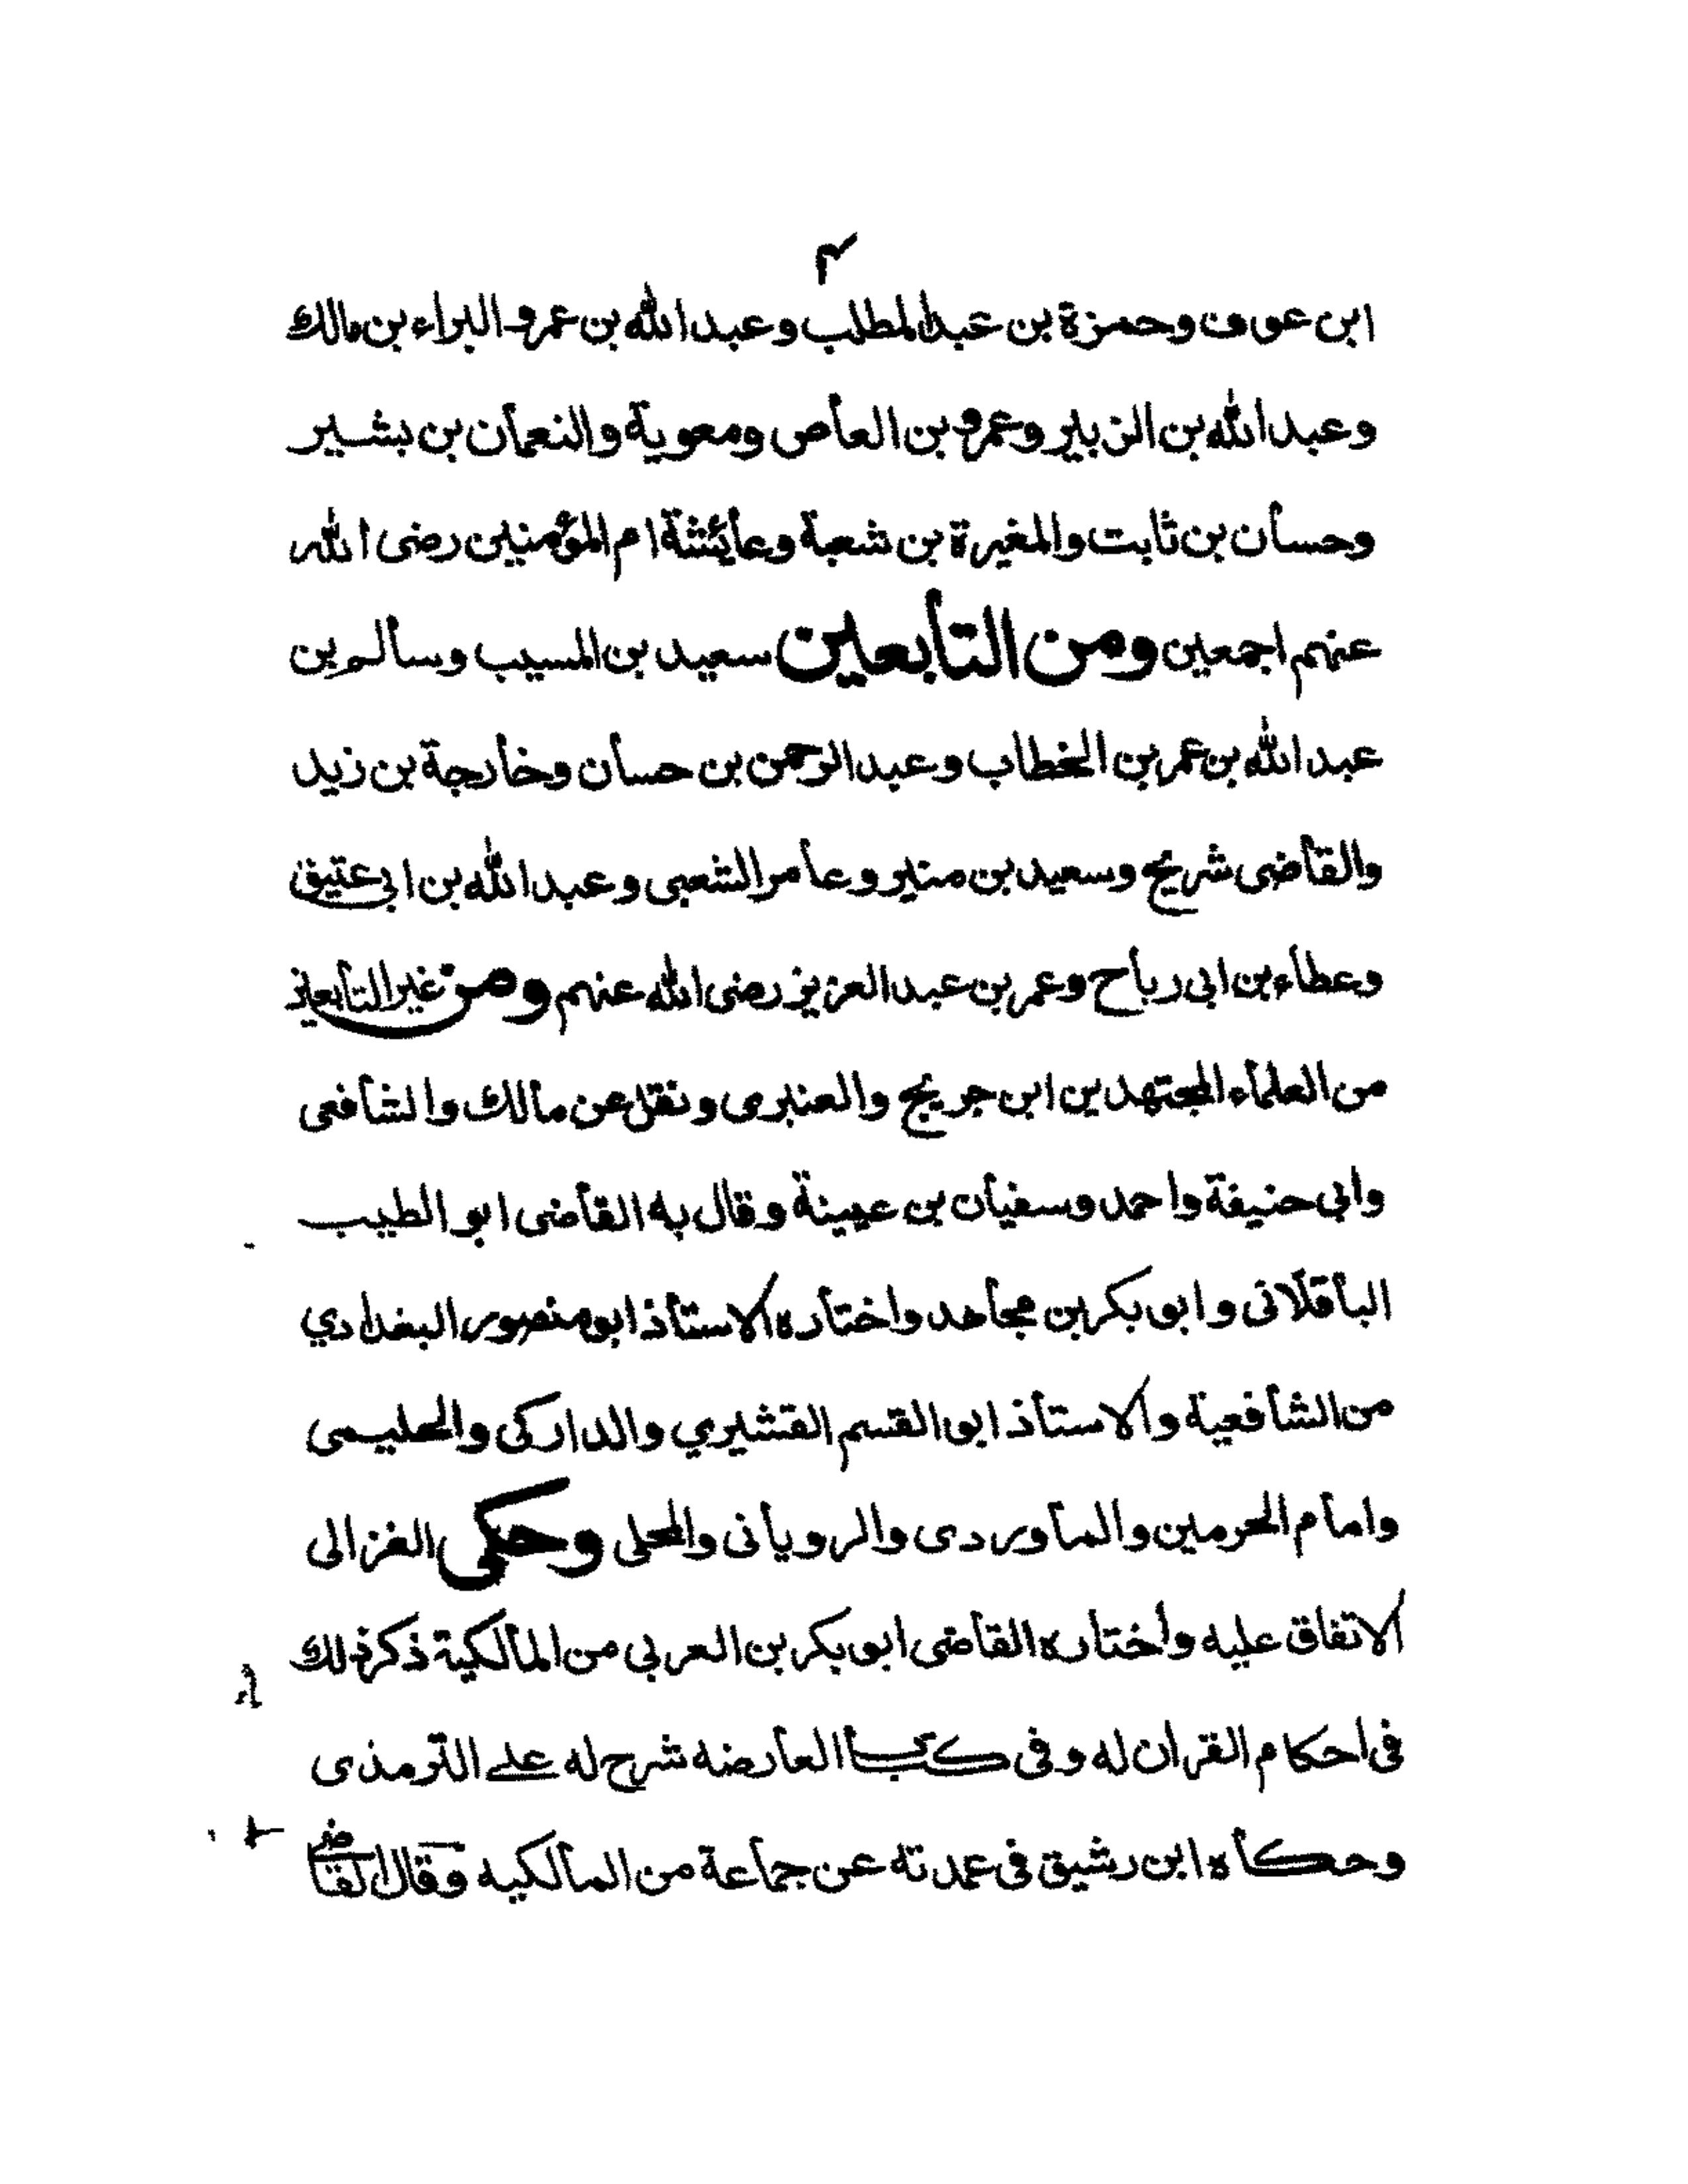 ٣
ابن عوف وحمزة بن عبدالمطلب وعبدالله بن عمرو البراء بن مالك
وعبدالله بن الزبير وعمرو بن العاص ومعوية والنعمان بن بشير
وحسان بن ثابت والمغيرة بن شعبة وعائشة ام المؤمنين رضى الله
عنهم اجمعين ومن التابعين سعيد بن المسيب وسالم بن
عبدالله بن عمر بن الخطاب وعبدالرحمن بن حسان وخارجة بن زيد
والقاضى شريح وسعيد بن منير وعامر الشعبى وعبدالله بن ابى عتيق
وعطاء بن ابى رباح وعمر بن عبدالعزيز رضى الله عنهم ومن غير التابعين
من العلماء المجتهدين ابن جريج والعنبرى ونقل عن مالك والشافعى
وابى حنيفة واحمد وسفيان بن عيينة وقال به القاضى ابو الطيب
الباقلانى وابو بكر بن مجاهد واختاره الاستاذ ابو منصور البغدادي
من الشافعية والاستاذ ابو القسم القشيري والداركى والحليمى
وامام الحرمين والماوردى والرويانى والمحلى وحكى الغزالى
الاتفاق عليه واختاره القاضى ابو بكر بن العربي من المالكية ذكر ذلك
فى احكام القران له وفى كتب العارضه شرح له على الترمذى
وحكاه ابن رشيق فى عمدته عن جماعة من المالكيه وقال القاضى